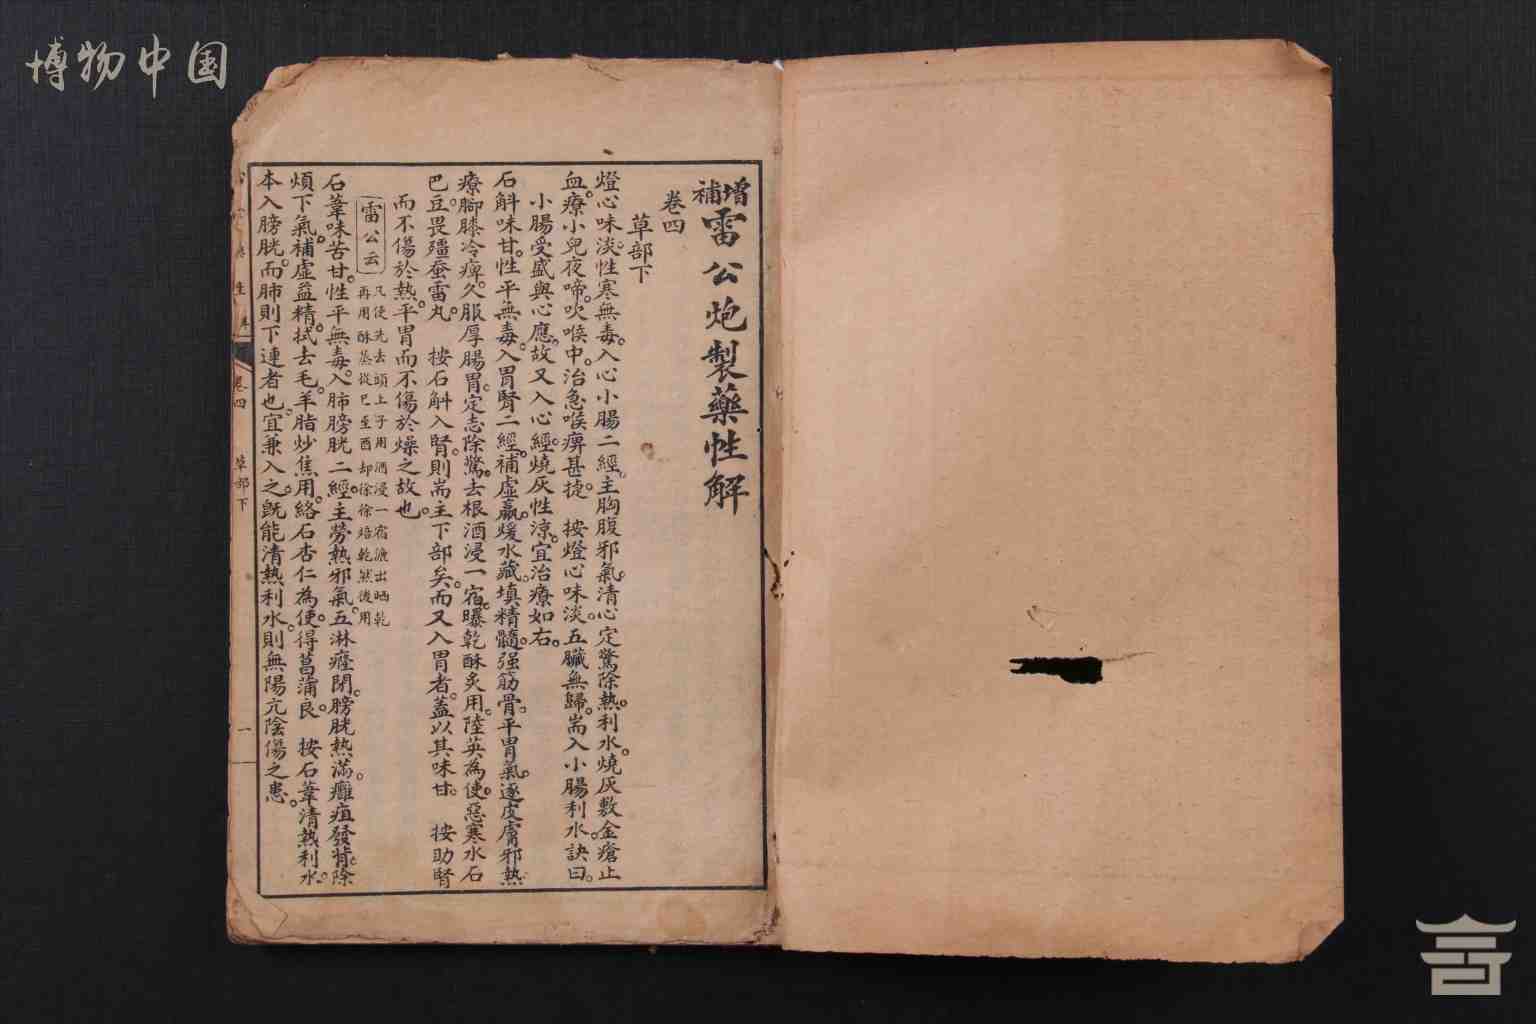 博物中国
增補雷公炮製藥性解
卷四
草部下
燈心味淡。性寒無毒。入心小腸二經。主胸腹邪氣。清心定驚除熱。利水。燒灰敷金瘡止
血。療小兒夜啼。吹喉中。治急喉痹甚捷。 按燈心味淡。五臟無歸。耑入小腸利水。訣曰。
小腸受盛與心應。故又入心經。燒灰性涼。宜治療如右。
石斛味甘。性平無毒。入胃腎二經。補虛羸。煖水藏。填精髓。强筋骨。平胃氣。逐皮膚邪熱
療腳膝冷痺。久服厚腸胃。定志除驚。去根酒浸一宿。曝乾酥炙用。陸英為使。惡寒水石
巴豆。畏殭蚕雷丸。 按石斛入腎。則耑主下部矣。而又入胃者。蓋以其味甘。 按助腎
而不傷於熱。平胃而不傷於燥之故也。
雷公云
凡使先去頭上子用酒浸一宿漉出晒乾
再用酥蒸從巳至酉却徐徐焙乾然後用
石葦味苦甘。性平無毒。入肺膀胱二經。主勞熱邪氣。五淋癃閉。膀胱熱滿。癰疽發背。除
煩下氣。補虛益精。拭去毛。羊脂炒焦用。絡石杏仁為使。得菖蒲良。 按石葦清熱利水。
本入膀胱。而肺則下連者也。宜兼入之。既能清熱利水。則無陽亢陰傷之患。
卷四
草部下
一